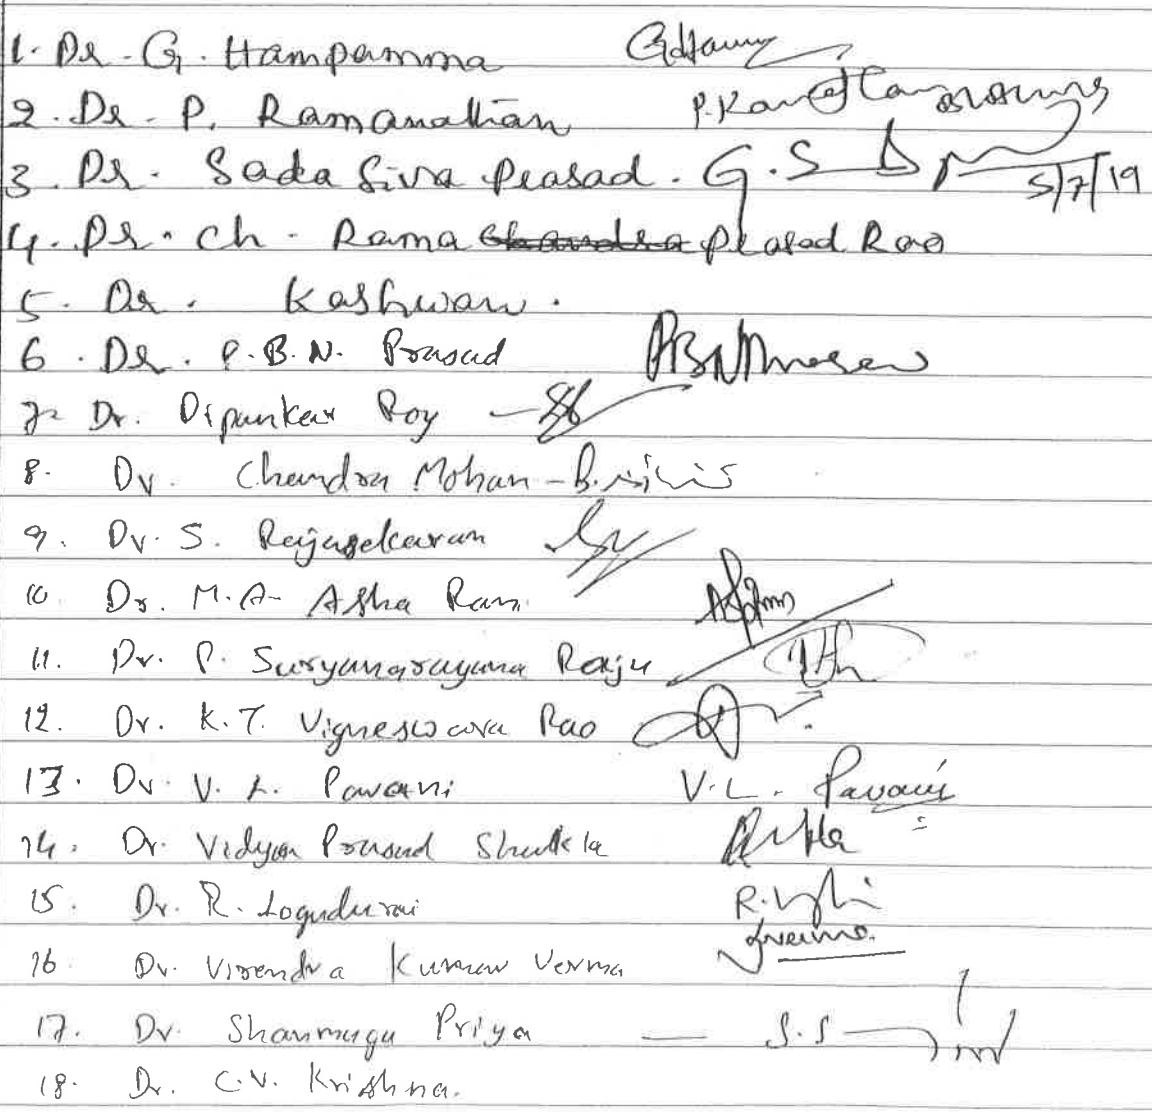 1. Dr. G. Hampamma
2. Dr. P. Ramanathan
3. Dr. Sada Siva Prasad. G.S 5/7/19
4. Dr. Ch. Rama Chandra Prasad Rao
5. Dr. Keshwan.
6. Dr. P.B.N. Prasad
7. Dr. Dipankar Roy
8. Dr. Chandra Mohan - B.
9. Dr. S. Rajasekaran
10. Dr. M.A. Asha Rani
11. Dr. P. Suryanarayana Raju
12. Dr. K.T. Vigneswara Rao
13. Dr. V. L. Pavani V.L. Pavani
14. Dr. Vidya Prasad Shukla
15. Dr. R. Logudurai R.
16. Dr. Virendra Kumar Verma
17. Dr. Shanmuga Priya — S.S
18. Dr. C.V. Krishna.